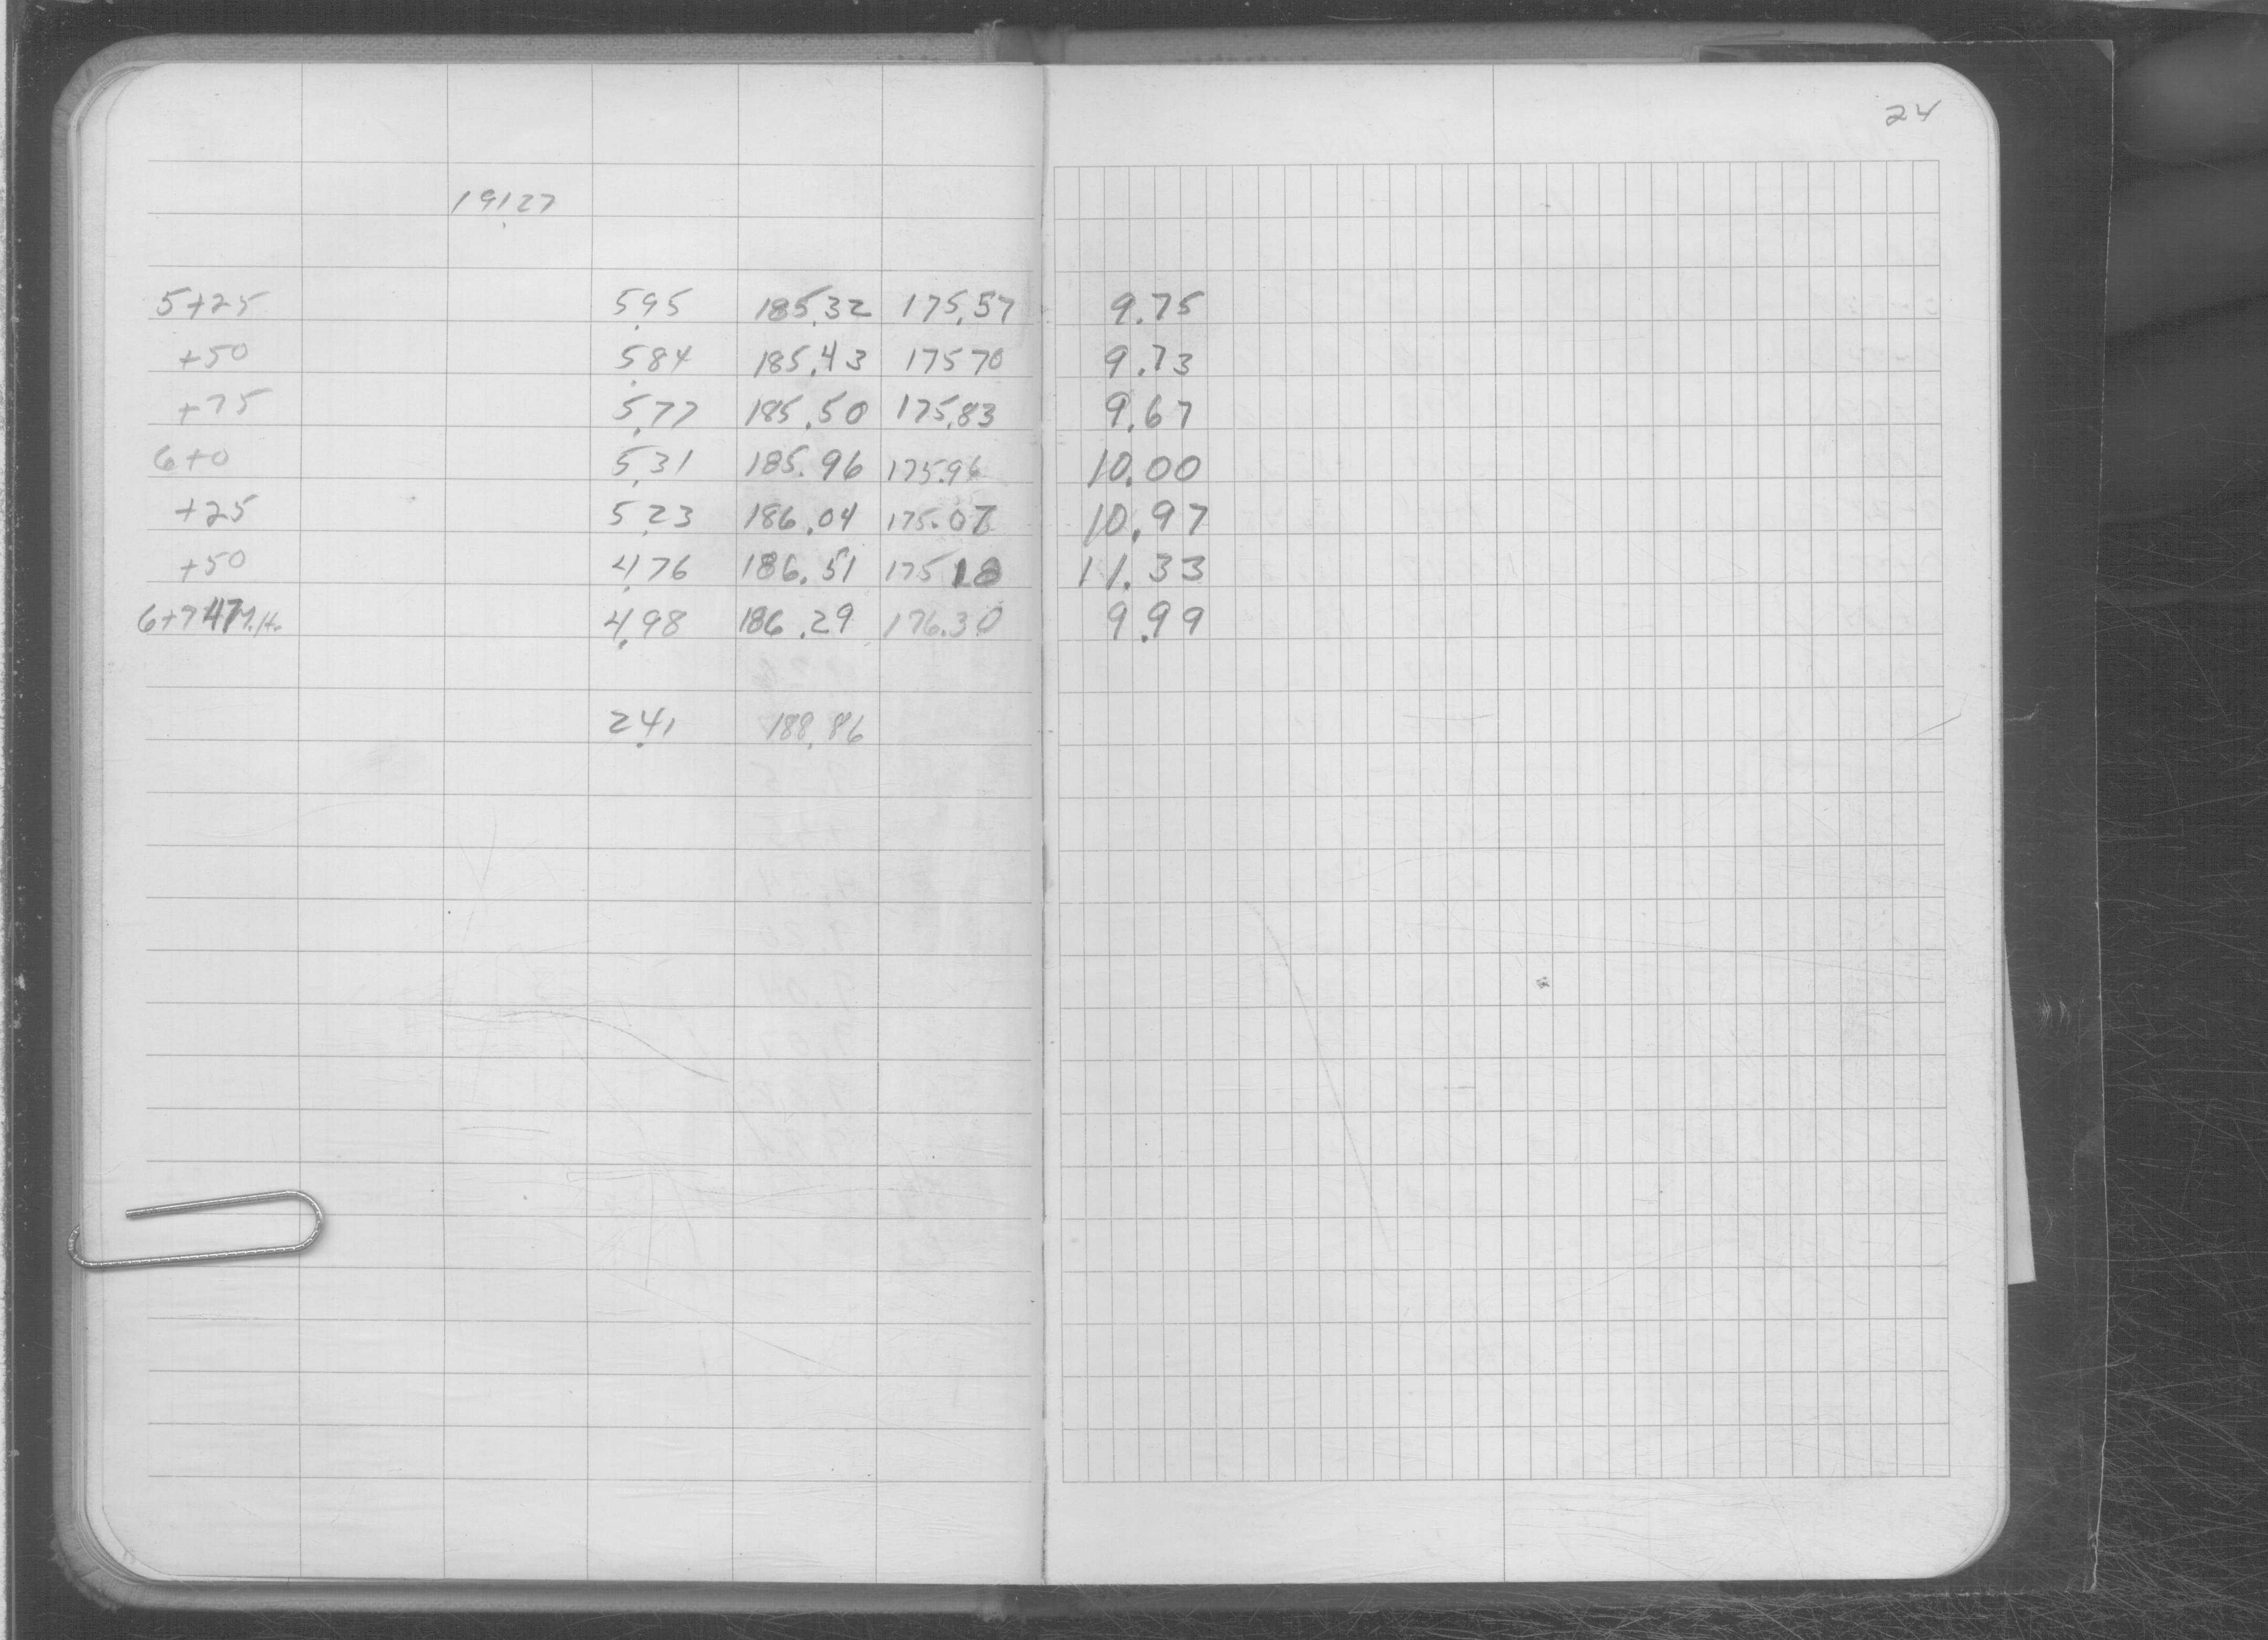 24
191.27
5+25 5.95 185.32 175.57 9.75
+50 5.84 185.43 17570 9.73
+75 5.77 185.50 175.83 9.67
6+0 5.31 185.96 175.96 10.00
+25 5.23 186.04 175.07 10.97
+50 4.76 186.51 175 18 11.33
6+747 M.H. 4.98 186.29 176.30 9.99
2.41 188.86